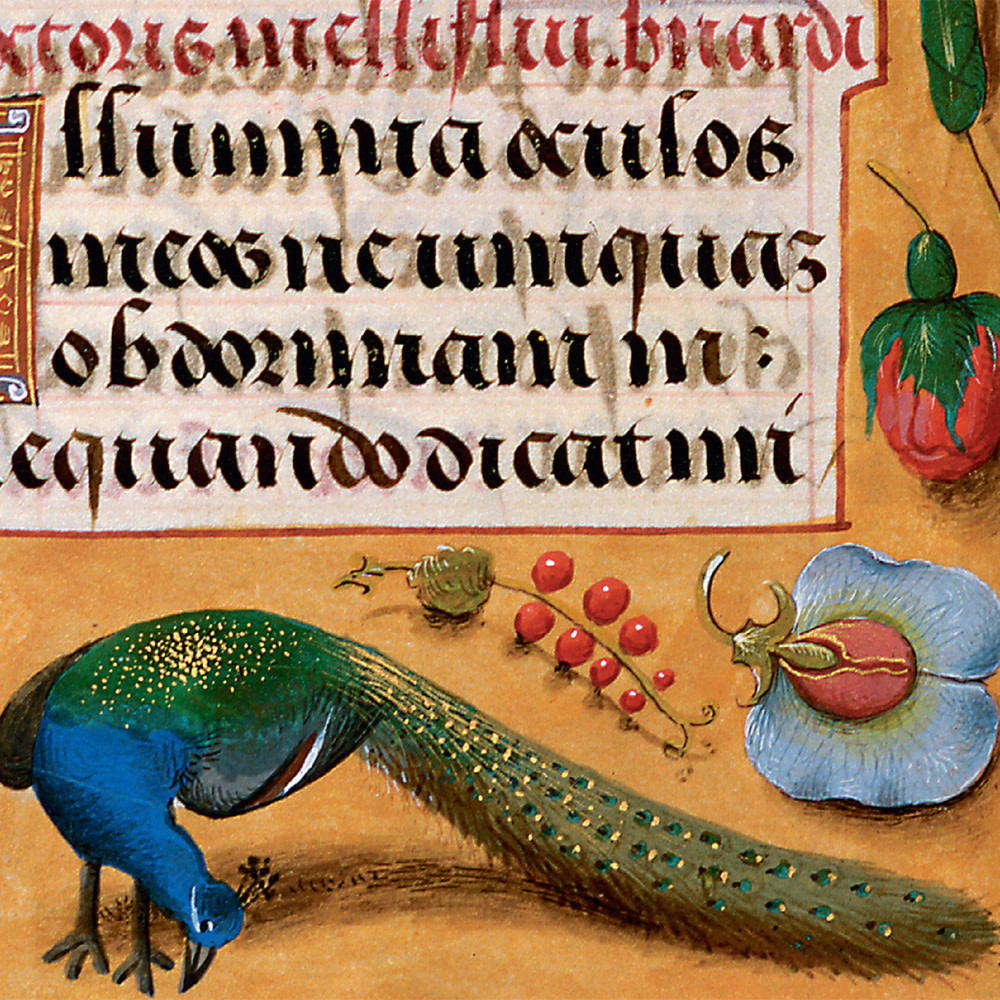 ctoris melliflui. bnardi.
Illumina oculos
meos ne umquaz
obdormiam in :
equando dicat ini